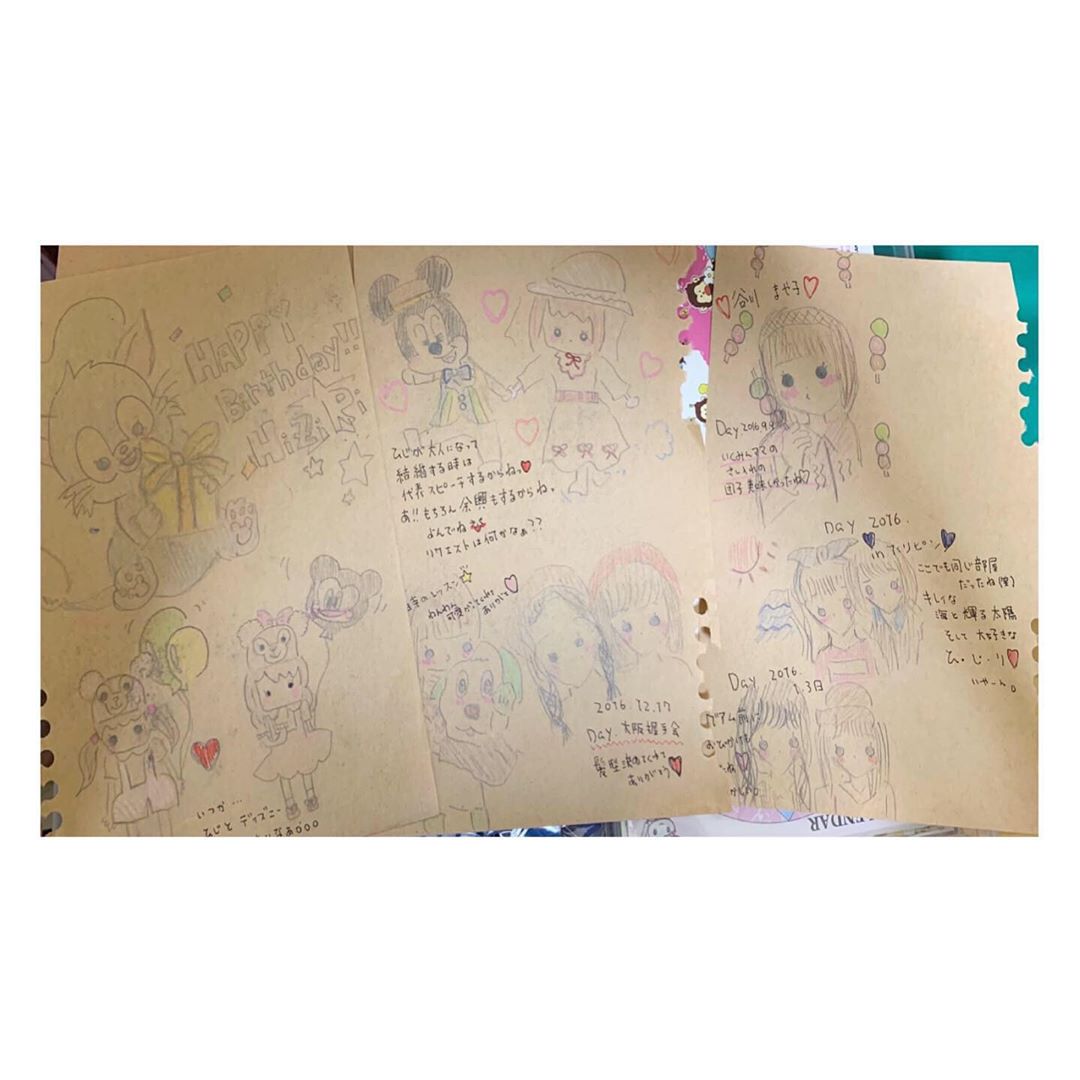 HAPPY
Birthday!!
HiZiRi
いつか...
ひじと ディズニー
なぁ○○○
ひじが大人になって
結婚する時は
代表スピーチするからねっ
あ!!もちろん余興もするからねっ
よんでね
リクエストは何かなぁ??
のレッスン
わんわん
ありがと
2016.12.17
Day. 大阪握手会
髪型決めてくれて
ありがとう
谷川 まや子
Day.2016.9.
いくみんママの
さしいれの
団子美味しかったね
Day 2016.
in フィリピン
ここでも同じ部屋
だったね(笑)
キレイな
海と輝る太陽
そして大好きな
ひ・じ・り
いやーん。
Day 2016.
1.3日
グアム前に
CALENDAR